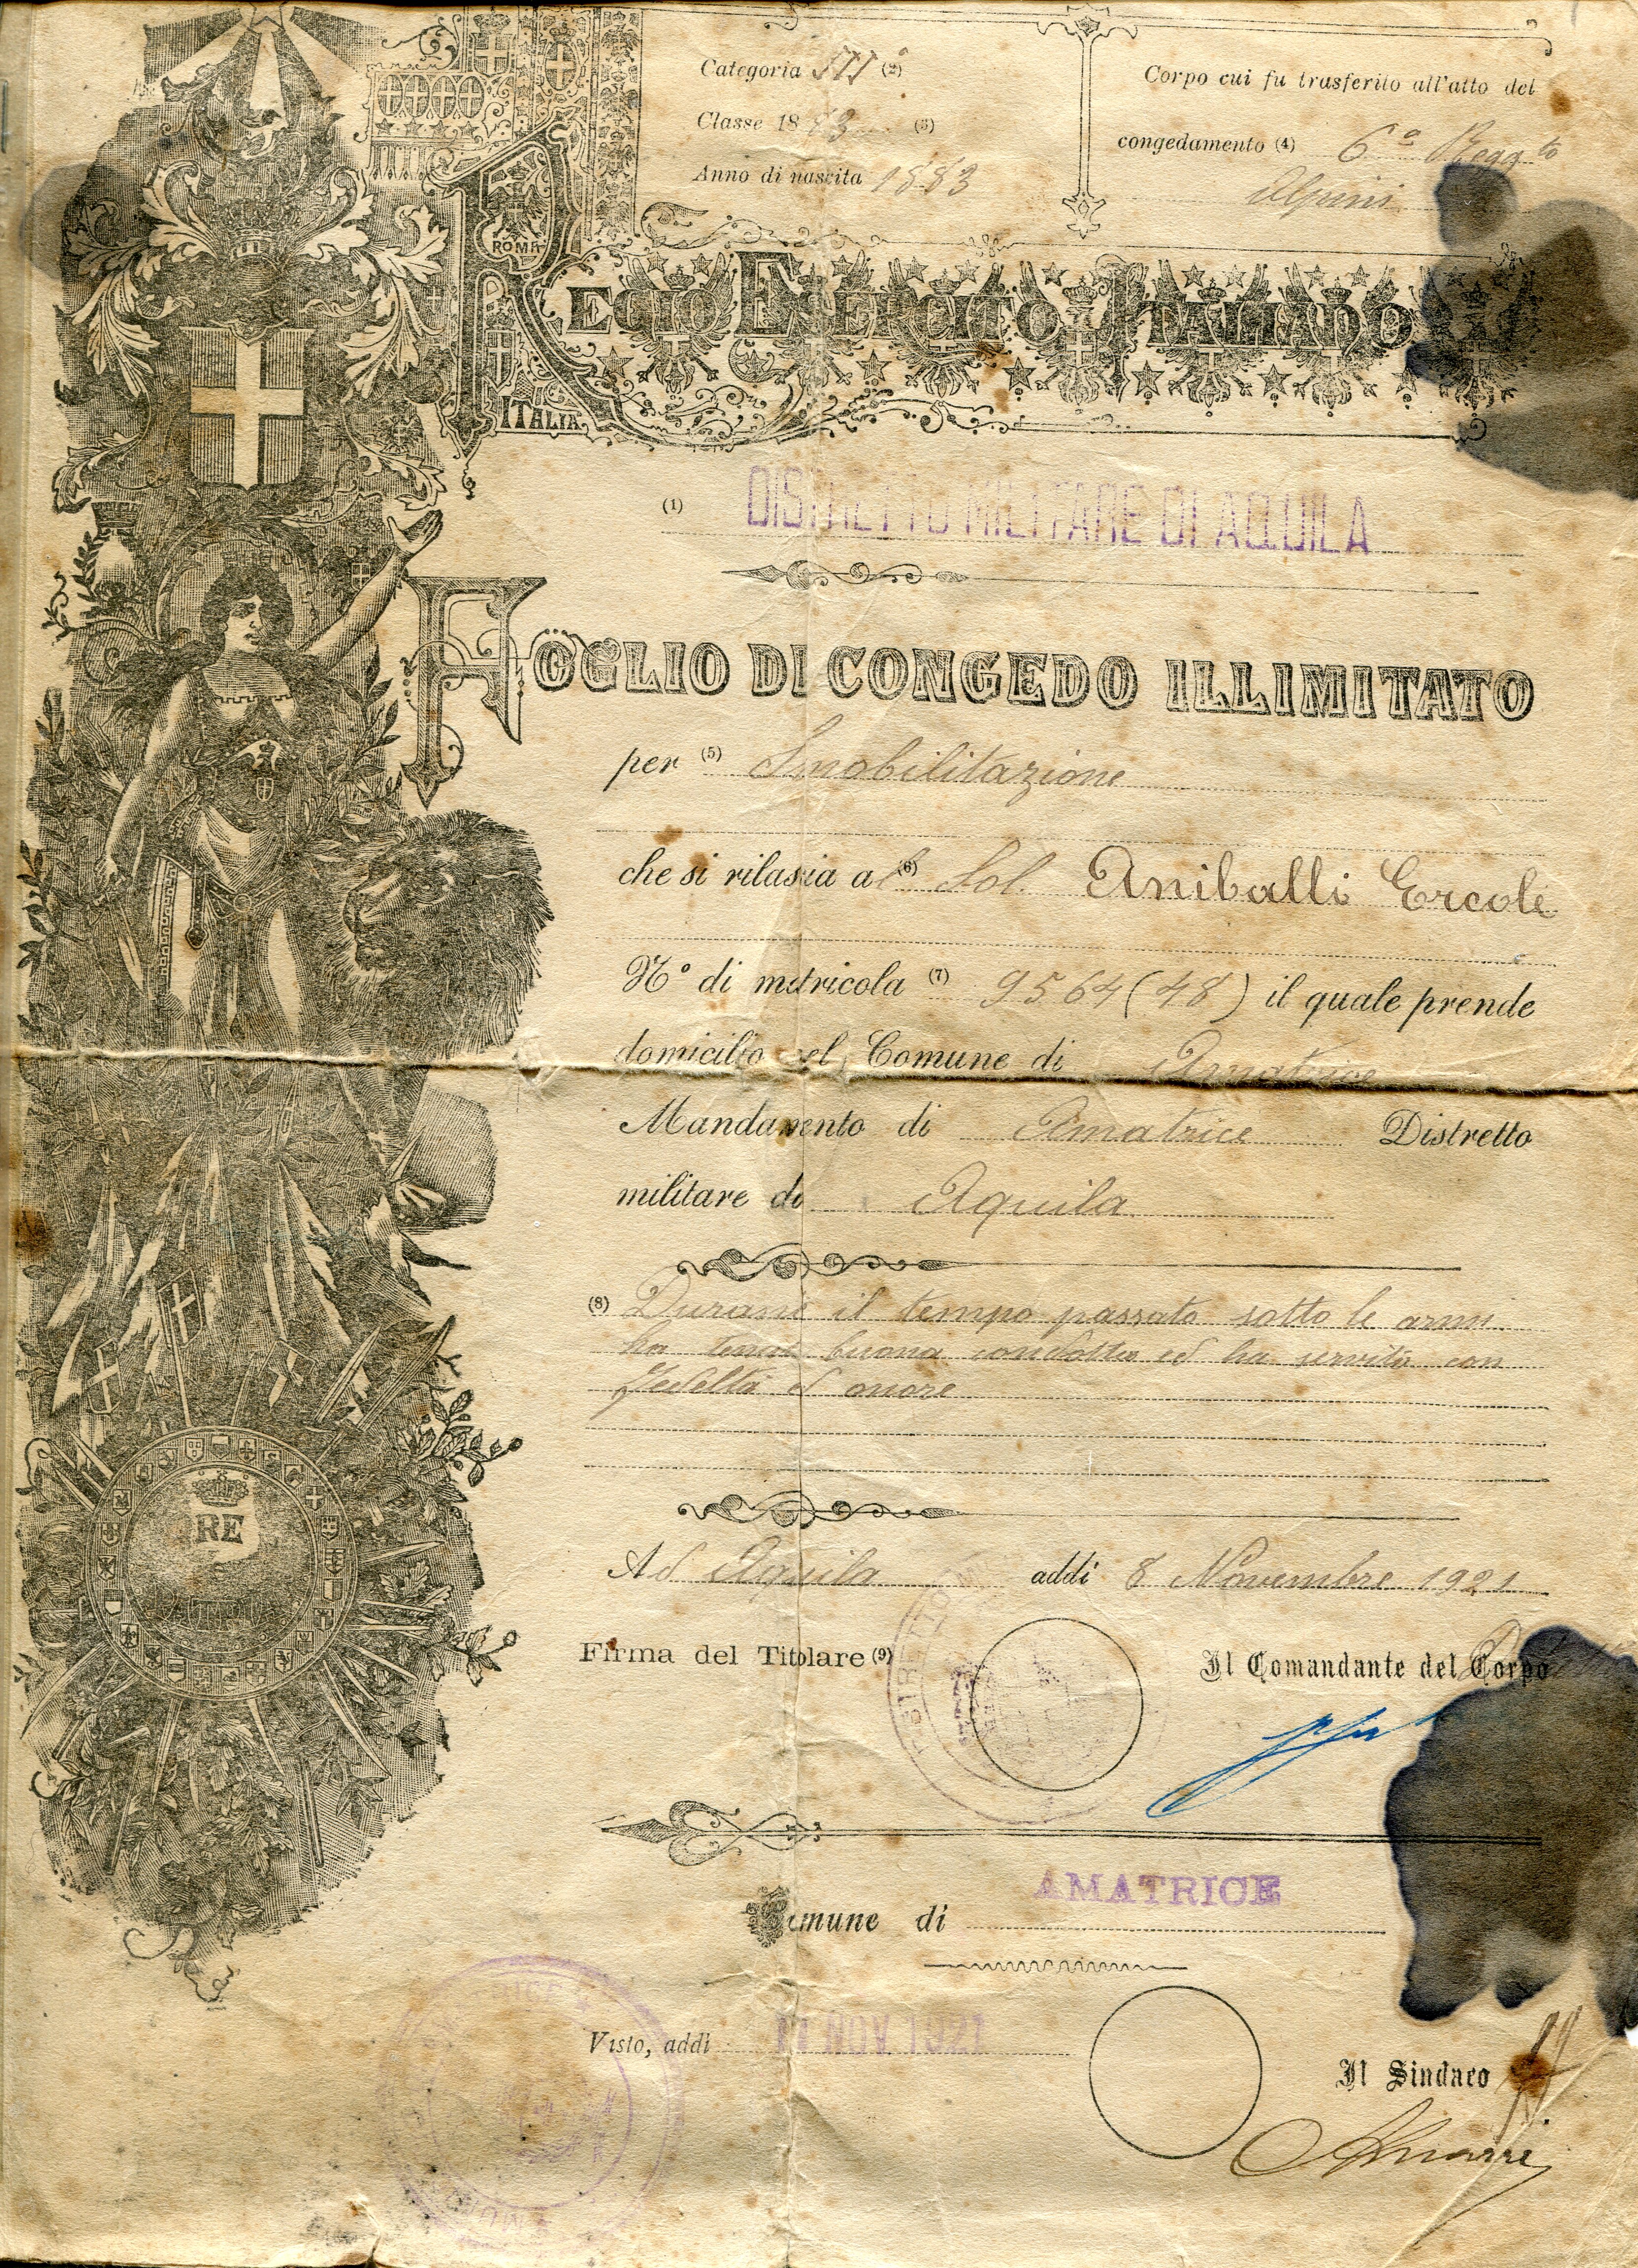 Categoria III (2)
Classe 18 83 (3)
Anno di nascita 1883
Corpo cui fu trasferito all'atto del
congedamento (4) 6° Regg.to
Alpini
ROMA
REGIO ESERCITO ITALIANO
ITALIA
(1) DISTRETTO MILITARE DI AQUILA
FOGLIO DI CONGEDO ILLIMITATO
per (5) Smobilitazione
che si rilascia al (6) Sol. Aniballi Ercole
N° di matricola (7) 9564 (48) il quale prende
domicilio nel Comune di Amatrice
Mandamento di Amatrice Distretto
militare di Aquila
(8) Durante il tempo passato sotto le armi
ha tenuto buona condotta ed ha servito con
fedeltà ed onore
RE
Ad Aquila addì 8 Novembre 1921
Firma del Titolare (9)
DISTRETTO
Il Comandante del Corpo
AMATRICE
Comune di
Visto, addì 11 NOV 1921
Il Sindaco